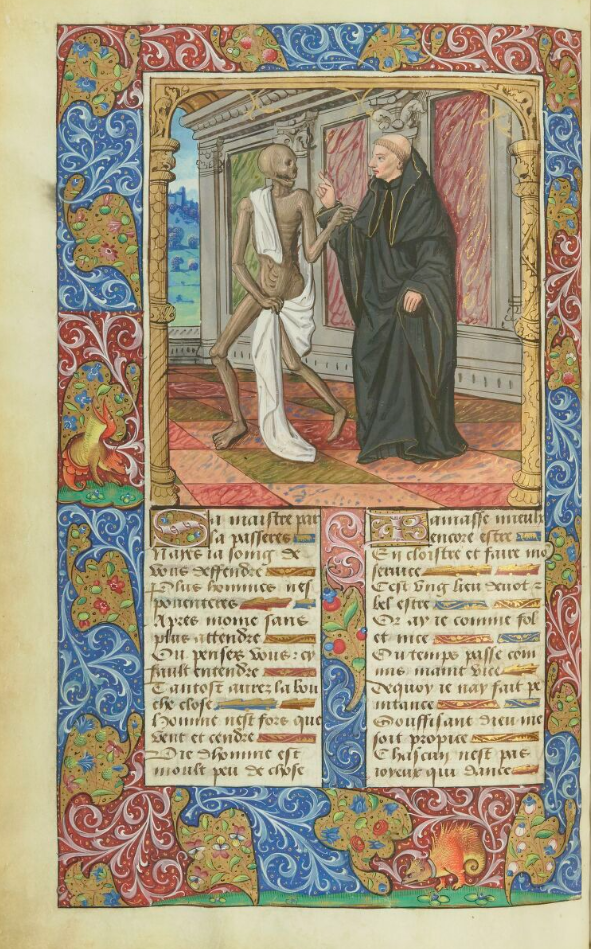 Ca maistre par
la passeres
Naies ia soing de
vous deffendre
Plus hommes nes
pouenteres
Apres moine sans
plus attendre
Ou pensez vous : cy
fault entendre
Tantost aurez la bou
che close
Homme nest fors que
vent et cendre
Vie dhomme est
moult peu de chose
Iamasse mieulx
encore estre
En cloistre et faire mo
seruice
Cest vng lieu deuot z
bel estre
Or ay ie comme fol
et nice
Ou temps passe com
mis maint vice
Dequoy ie nay fait pe
nitance
Souffisant dieu me
soit propice
Chascun nest pas
ioyeux qui dance